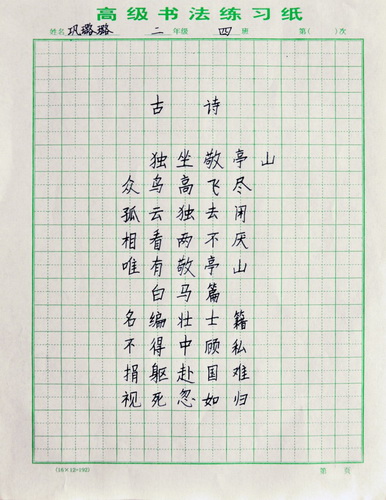 高级书法练习纸
姓名 巩璐璐 二 年级 四 班 第( )次
古诗
独坐敬亭山
众鸟高飞尽
孤云独去闲
相看两不厌
唯有敬亭山
白马篇
名编壮士籍
不得中顾私
捐躯赴国难
视死忽如归
(16×12=192) 第 页